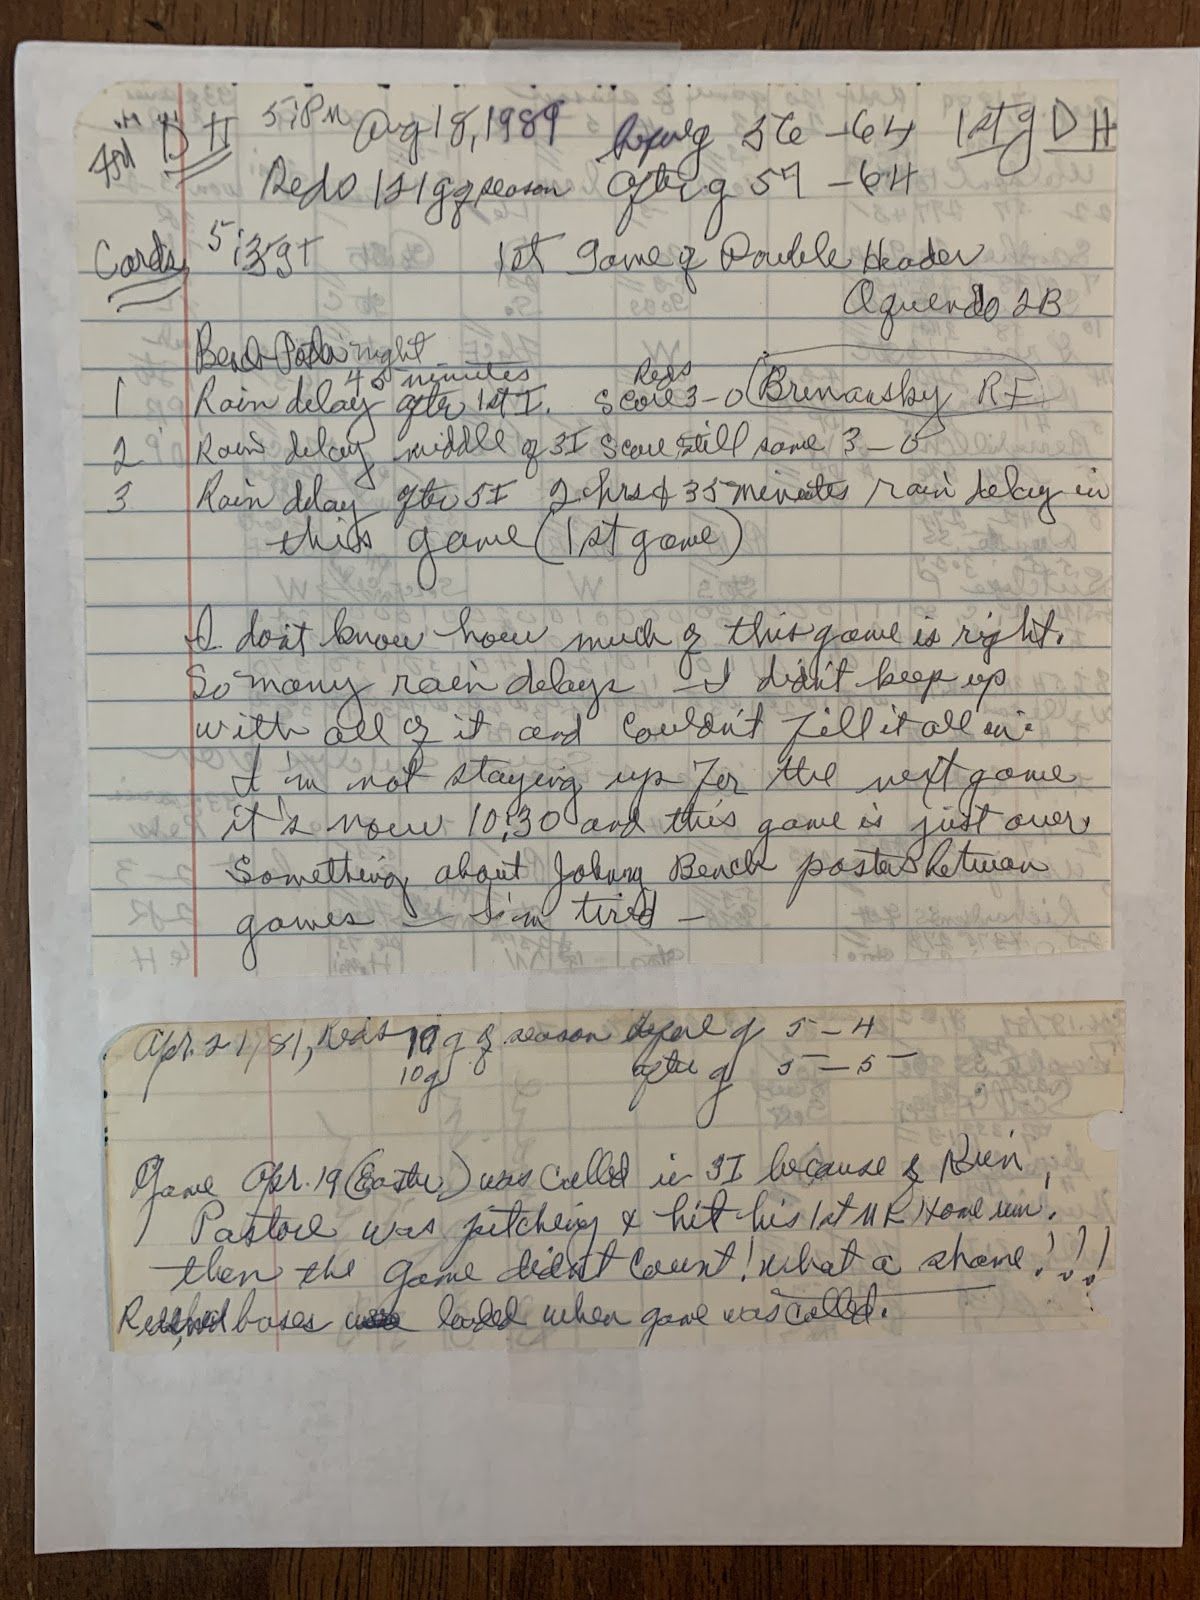 Fri D H 5 PM Aug 18, 1989 before g 56 - 64 1st g D H
Reds g of season after g 57 - 64
Cards 5:35 gt 1st Game of Double Header
Oquendo 2B
Bench Poster night
45 minutes Reds
1 Rain delay after 1st I. Score 3-0 Brunansky RF
2 Rain delay middle of 3I Score still same 3-0
3 Rain delay after 5I 2 hrs & 35 minutes rain delay in
this game (1st game)
I don't know how much of this game is right.
So many rain delays - I didn't keep up
with all of it and couldn't fill it all in.
I'm not staying up for the next game
it's now 10:30 and this game is just over,
Something about Johnny Bench posters between
games - I'm tired -
Apr. 21, 81, Reds 10 g of season before g 5 - 4
10 g after g 5 - 5
Game Apr. 19 (Easter) was called in 3I because of Rain,
Pastore was pitching & hit his 1st ML Home run.
then the game didn't count! What a shame!!!
Reds had bases loaded when game was called.